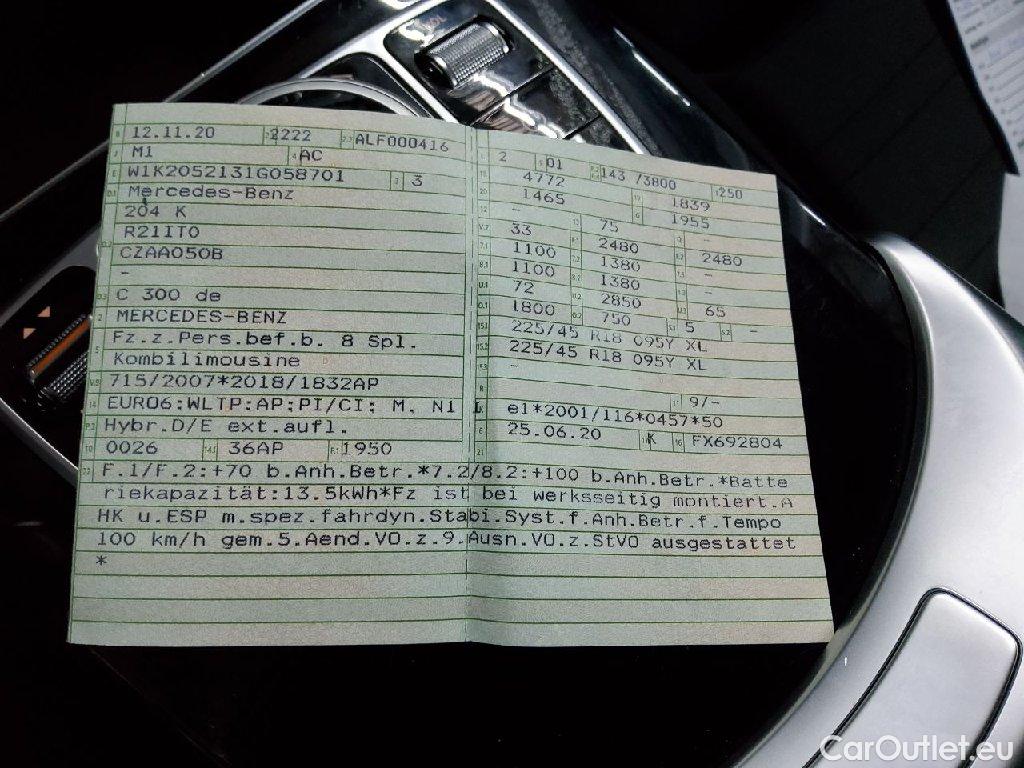 12.11.20 2222 ALF000416
M1 AC
W1K2052131G058701 3
Mercedes-Benz
204 K
R211T0
CZAA050B
-
C 300 de
MERCEDES-BENZ
Fz.z.Pers.bef.b. 8 Spl.
Kombilimousine
715/2007*2018/1832AP
EURO6;WLTP;AP;PI/CI; M, N1 I
Hybr.D/E ext.aufl.
0026 36AP 1950
2 01 143 /3800 250
4772 1839
1465 1955
- 75 -
33 2480 2480
1100 1380 -
1100 1380 -
72 2850 65
1800 750 5 -
225/45 R18 095Y XL
225/45 R18 095Y XL
-
9/-
e1*2001/116*0457*50
25.06.20 K FX692804
F.1/F.2:+70 b.Anh.Betr.*7.2/8.2:+100 b.Anh.Betr.*Batte
riekapazität:13.5kWh*Fz ist bei werksseitig montiert.A
HK u.ESP m.spez.fahrdyn.Stabi.Syst.f.Anh.Betr.f.Tempo
100 km/h gem.5.Aend.VO.z.9.Ausn.VO.z.StVO ausgestattet
*
CarOutlet.eu